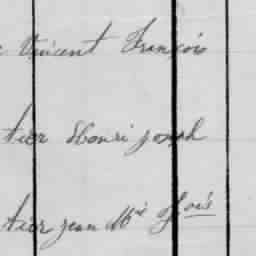 Vincent François
tier Henri joseph
tier jean M^ie